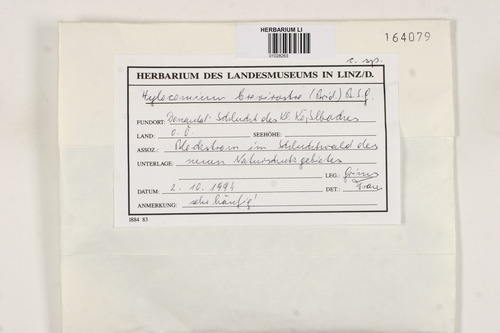 HERBARIUM LI
01028263
164079
c. sp.
HERBARIUM DES LANDESMUSEUMS IN LINZ/D.
Hylocomium brevirostre (Brid) B.S.G.
FUNDORT: Donautal: Schlucht des Kl. Keßlbaches
LAND: O.Ö. SEEHÖHE:
ASSOZ.: Blockstrom im Schluchtwald des
UNTERLAGE: neuen Naturschutzgebietes
LEG.: Grims
DATUM: 2. 10. 1994 DET.:
ANMERKUNG: sehr häufig!
I884 83